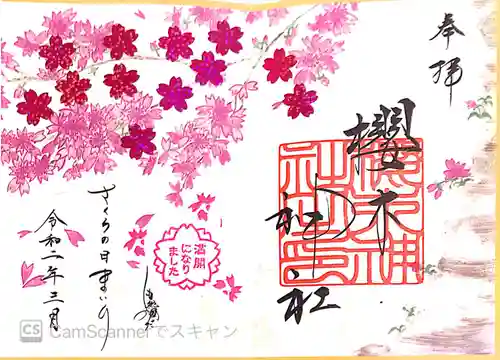 奉拝
櫻木
神社
櫻木神社之印
満開
になり
ました
さくらの日まいり
令和二年三月
CS CamScannerでスキャン